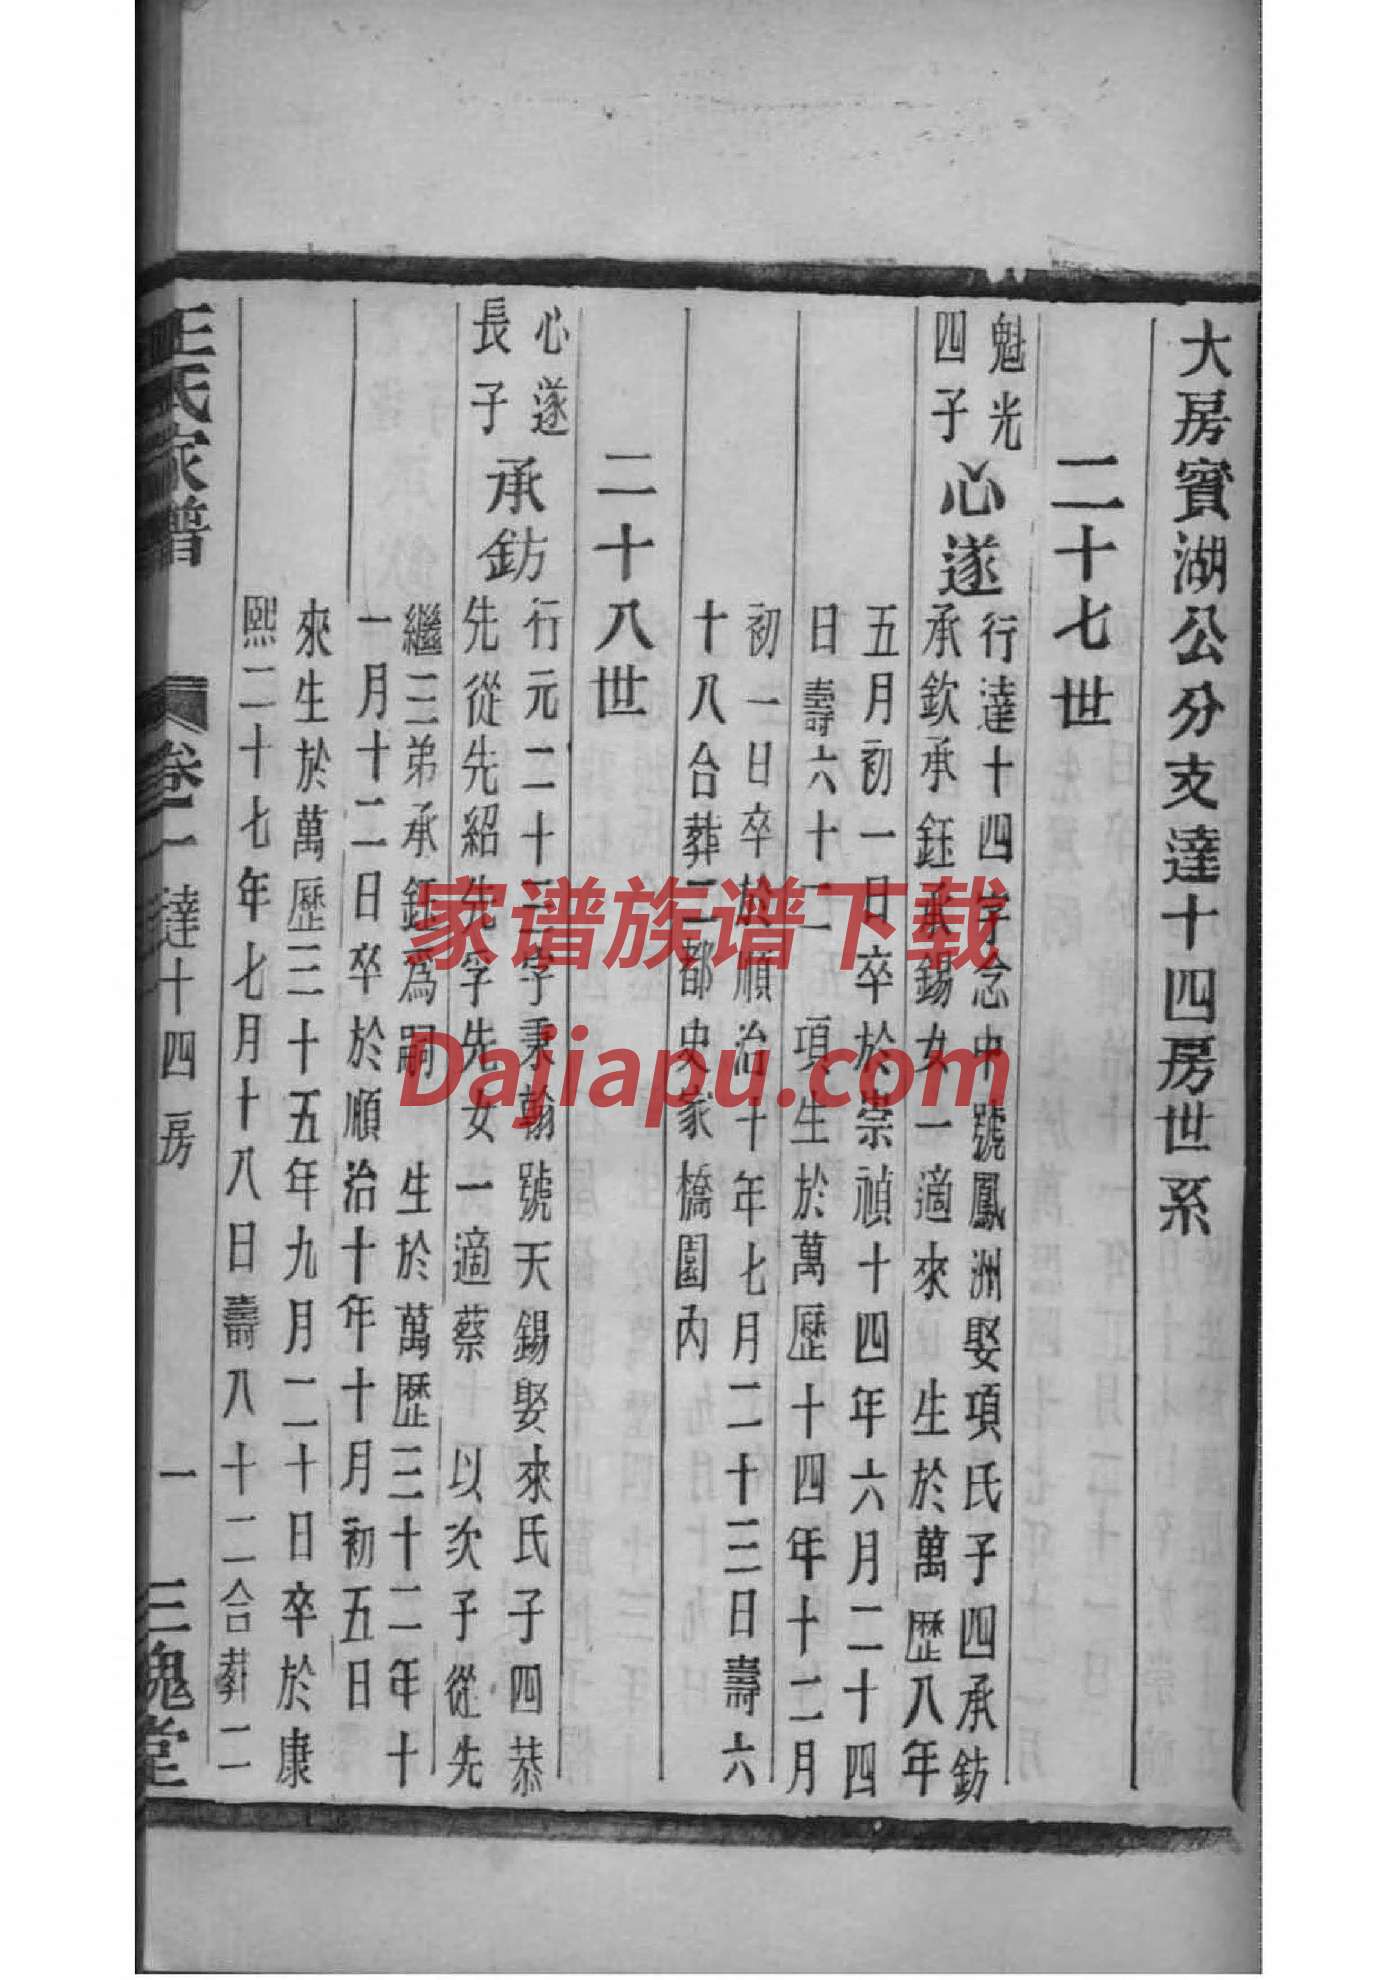 大房賓湖公分支達十四房世系
二十七世
魁光
四子
心遂
行達十四字念中號鳳洲娶項氏子四承鈁
承欽承鈺承錫女一適來 生於萬歷八年
五月初一日卒於崇禎十四年六月二十四
日壽六十二 項生於萬歷十四年十二月
初一日卒於順治十年七月二十三日壽六
十八合葬二都史家橋園內
二十八世
心遂
長子
承鈁
行元二十三字秉翰號天錫娶來氏子四恭
先從先紹先孚先女一適蔡 以次子從先
繼三弟承鈺為嗣 生於萬歷三十二年十
一月十二日卒於順治十年十月初五日
來生於萬歷三十五年九月二十日卒於康
熙二十七年七月十八日壽八十二合葬二
王氏家譜
卷二 達十四房
一
三槐堂
家谱族谱下载
Dajiapu.com